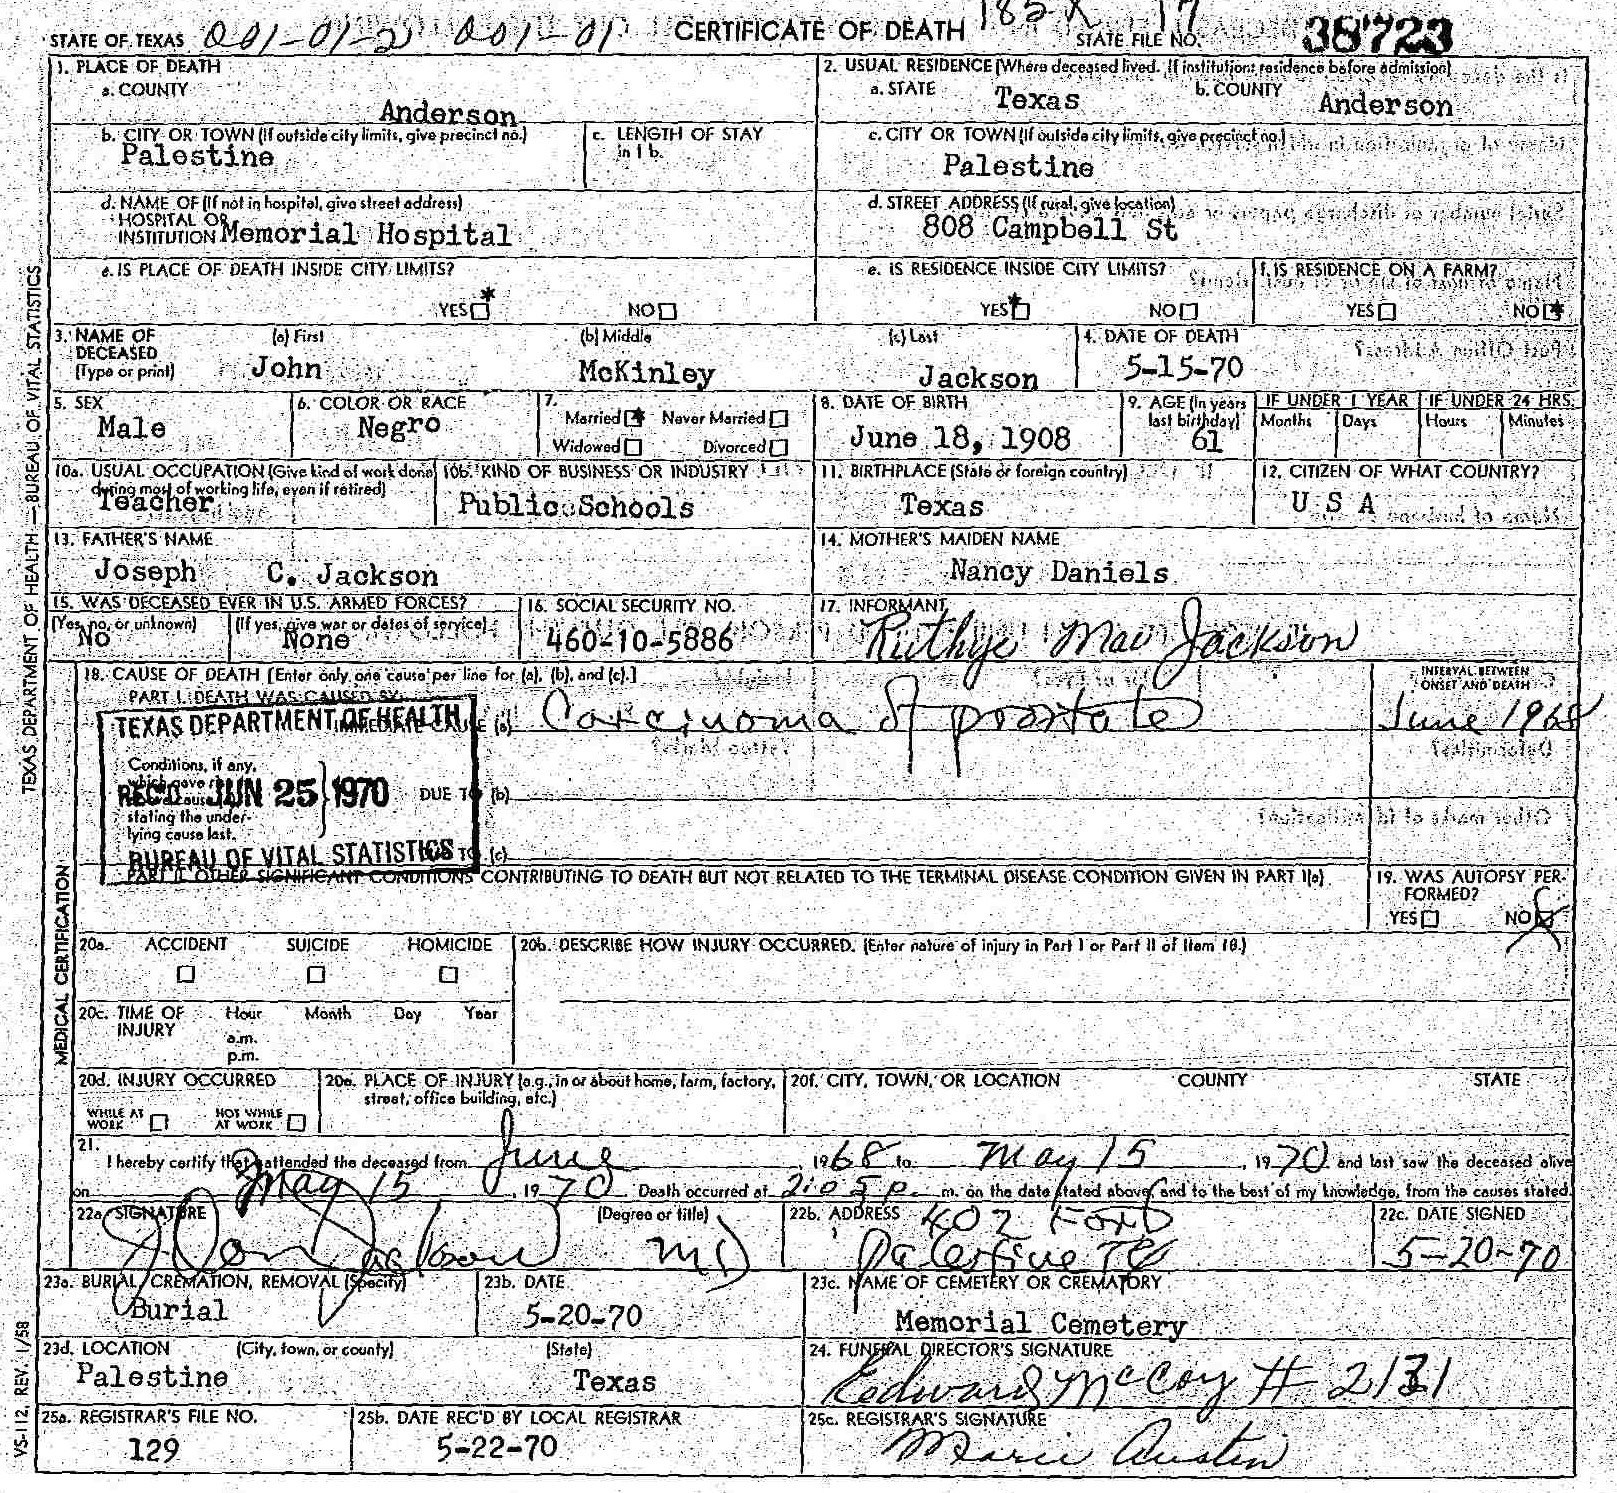 STATE OF TEXAS 001-01-2 001-01 CERTIFICATE OF DEATH STATE FILE NO. 38723
1. PLACE OF DEATH
a. COUNTY
Anderson
2. USUAL RESIDENCE (Where deceased lived. If institution: residence before admission)
a. STATE Texas b. COUNTY Anderson
b. CITY OR TOWN (If outside city limits, give precinct no.)
Palestine
c. LENGTH OF STAY
in 1 b.
c. CITY OR TOWN (If outside city limits, give precinct no.)
Palestine
d. NAME OF (If not in hospital, give street address)
HOSPITAL OR
INSTITUTION Memorial Hospital
d. STREET ADDRESS (If rural, give location)
808 Campbell St
e. IS PLACE OF DEATH INSIDE CITY LIMITS?
YES NO
e. IS RESIDENCE INSIDE CITY LIMITS?
YES NO
f. IS RESIDENCE ON A FARM?
YES NO
3. NAME OF
DECEASED
(Type or print)
(a) First (b) Middle (c) Last
John McKinley Jackson
4. DATE OF DEATH
5-15-70
5. SEX
Male
6. COLOR OR RACE
Negro
7.
Married Never Married
Widowed Divorced
8. DATE OF BIRTH
June 18, 1908
9. AGE (In years
last birthday)
61
IF UNDER 1 YEAR IF UNDER 24 HRS.
Months Days Hours Minutes
10a. USUAL OCCUPATION (Give kind of work done
during most of working life, even if retired)
Teacher
10b. KIND OF BUSINESS OR INDUSTRY
Public Schools
11. BIRTHPLACE (State or foreign country)
Texas
12. CITIZEN OF WHAT COUNTRY?
U S A
13. FATHER'S NAME
Joseph C. Jackson
14. MOTHER'S MAIDEN NAME
Nancy Daniels
15. WAS DECEASED EVER IN U.S. ARMED FORCES?
(Yes, no, or unknown) (If yes, give war or dates of service)
No None
16. SOCIAL SECURITY NO.
460-10-5886
17. INFORMANT
Ruthye Mae Jackson
18. CAUSE OF DEATH [Enter only one cause per line for (a), (b), and (c).]
PART I. DEATH WAS CAUSED BY:
IMMEDIATE CAUSE (a) Carcinoma of prostate
INTERVAL BETWEEN
ONSET AND DEATH
June 1968
TEXAS DEPARTMENT OF HEALTH
REC'D JUN 25 1970
BUREAU OF VITAL STATISTICS
Conditions, if any,
which gave
cause
stating the under-
lying cause last.
DUE TO (b)
TO (c)
PART II. OTHER SIGNIFICANT CONDITIONS CONTRIBUTING TO DEATH BUT NOT RELATED TO THE TERMINAL DISEASE CONDITION GIVEN IN PART I(a)
19. WAS AUTOPSY PER-
FORMED?
YES NO
20a. ACCIDENT SUICIDE HOMICIDE
20b. DESCRIBE HOW INJURY OCCURRED. (Enter nature of injury in Part I or Part II of Item 18.)
20c. TIME OF
INJURY
Hour Month Day Year
a.m.
p.m.
20d. INJURY OCCURRED
WHILE AT
WORK
NOT WHILE
AT WORK
20e. PLACE OF INJURY (e.g., in or about home, farm, factory,
street, office building, etc.)
20f. CITY, TOWN, OR LOCATION COUNTY STATE
21.
I hereby certify that I attended the deceased from June, 1968 to May 15, 1970 and last saw the deceased alive
on May 15, 1970. Death occurred at 2:05 p. m. on the date stated above, and to the best of my knowledge, from the causes stated.
22a. SIGNATURE (Degree or title)
J Don Jackson MD
22b. ADDRESS 402 Ford
Palestine Tex
22c. DATE SIGNED
5-20-70
23a. BURIAL, CREMATION, REMOVAL (Specify)
Burial
23b. DATE
5-20-70
23c. NAME OF CEMETERY OR CREMATORY
Memorial Cemetery
23d. LOCATION (City, town, or county) (State)
Palestine Texas
24. FUNERAL DIRECTOR'S SIGNATURE
Edward McCoy # 2131
25a. REGISTRAR'S FILE NO.
129
25b. DATE REC'D BY LOCAL REGISTRAR
5-22-70
25c. REGISTRAR'S SIGNATURE
Marie Austin
TEXAS DEPARTMENT OF HEALTH—BUREAU OF VITAL STATISTICS
MEDICAL CERTIFICATION
VS-112, REV. 1/58